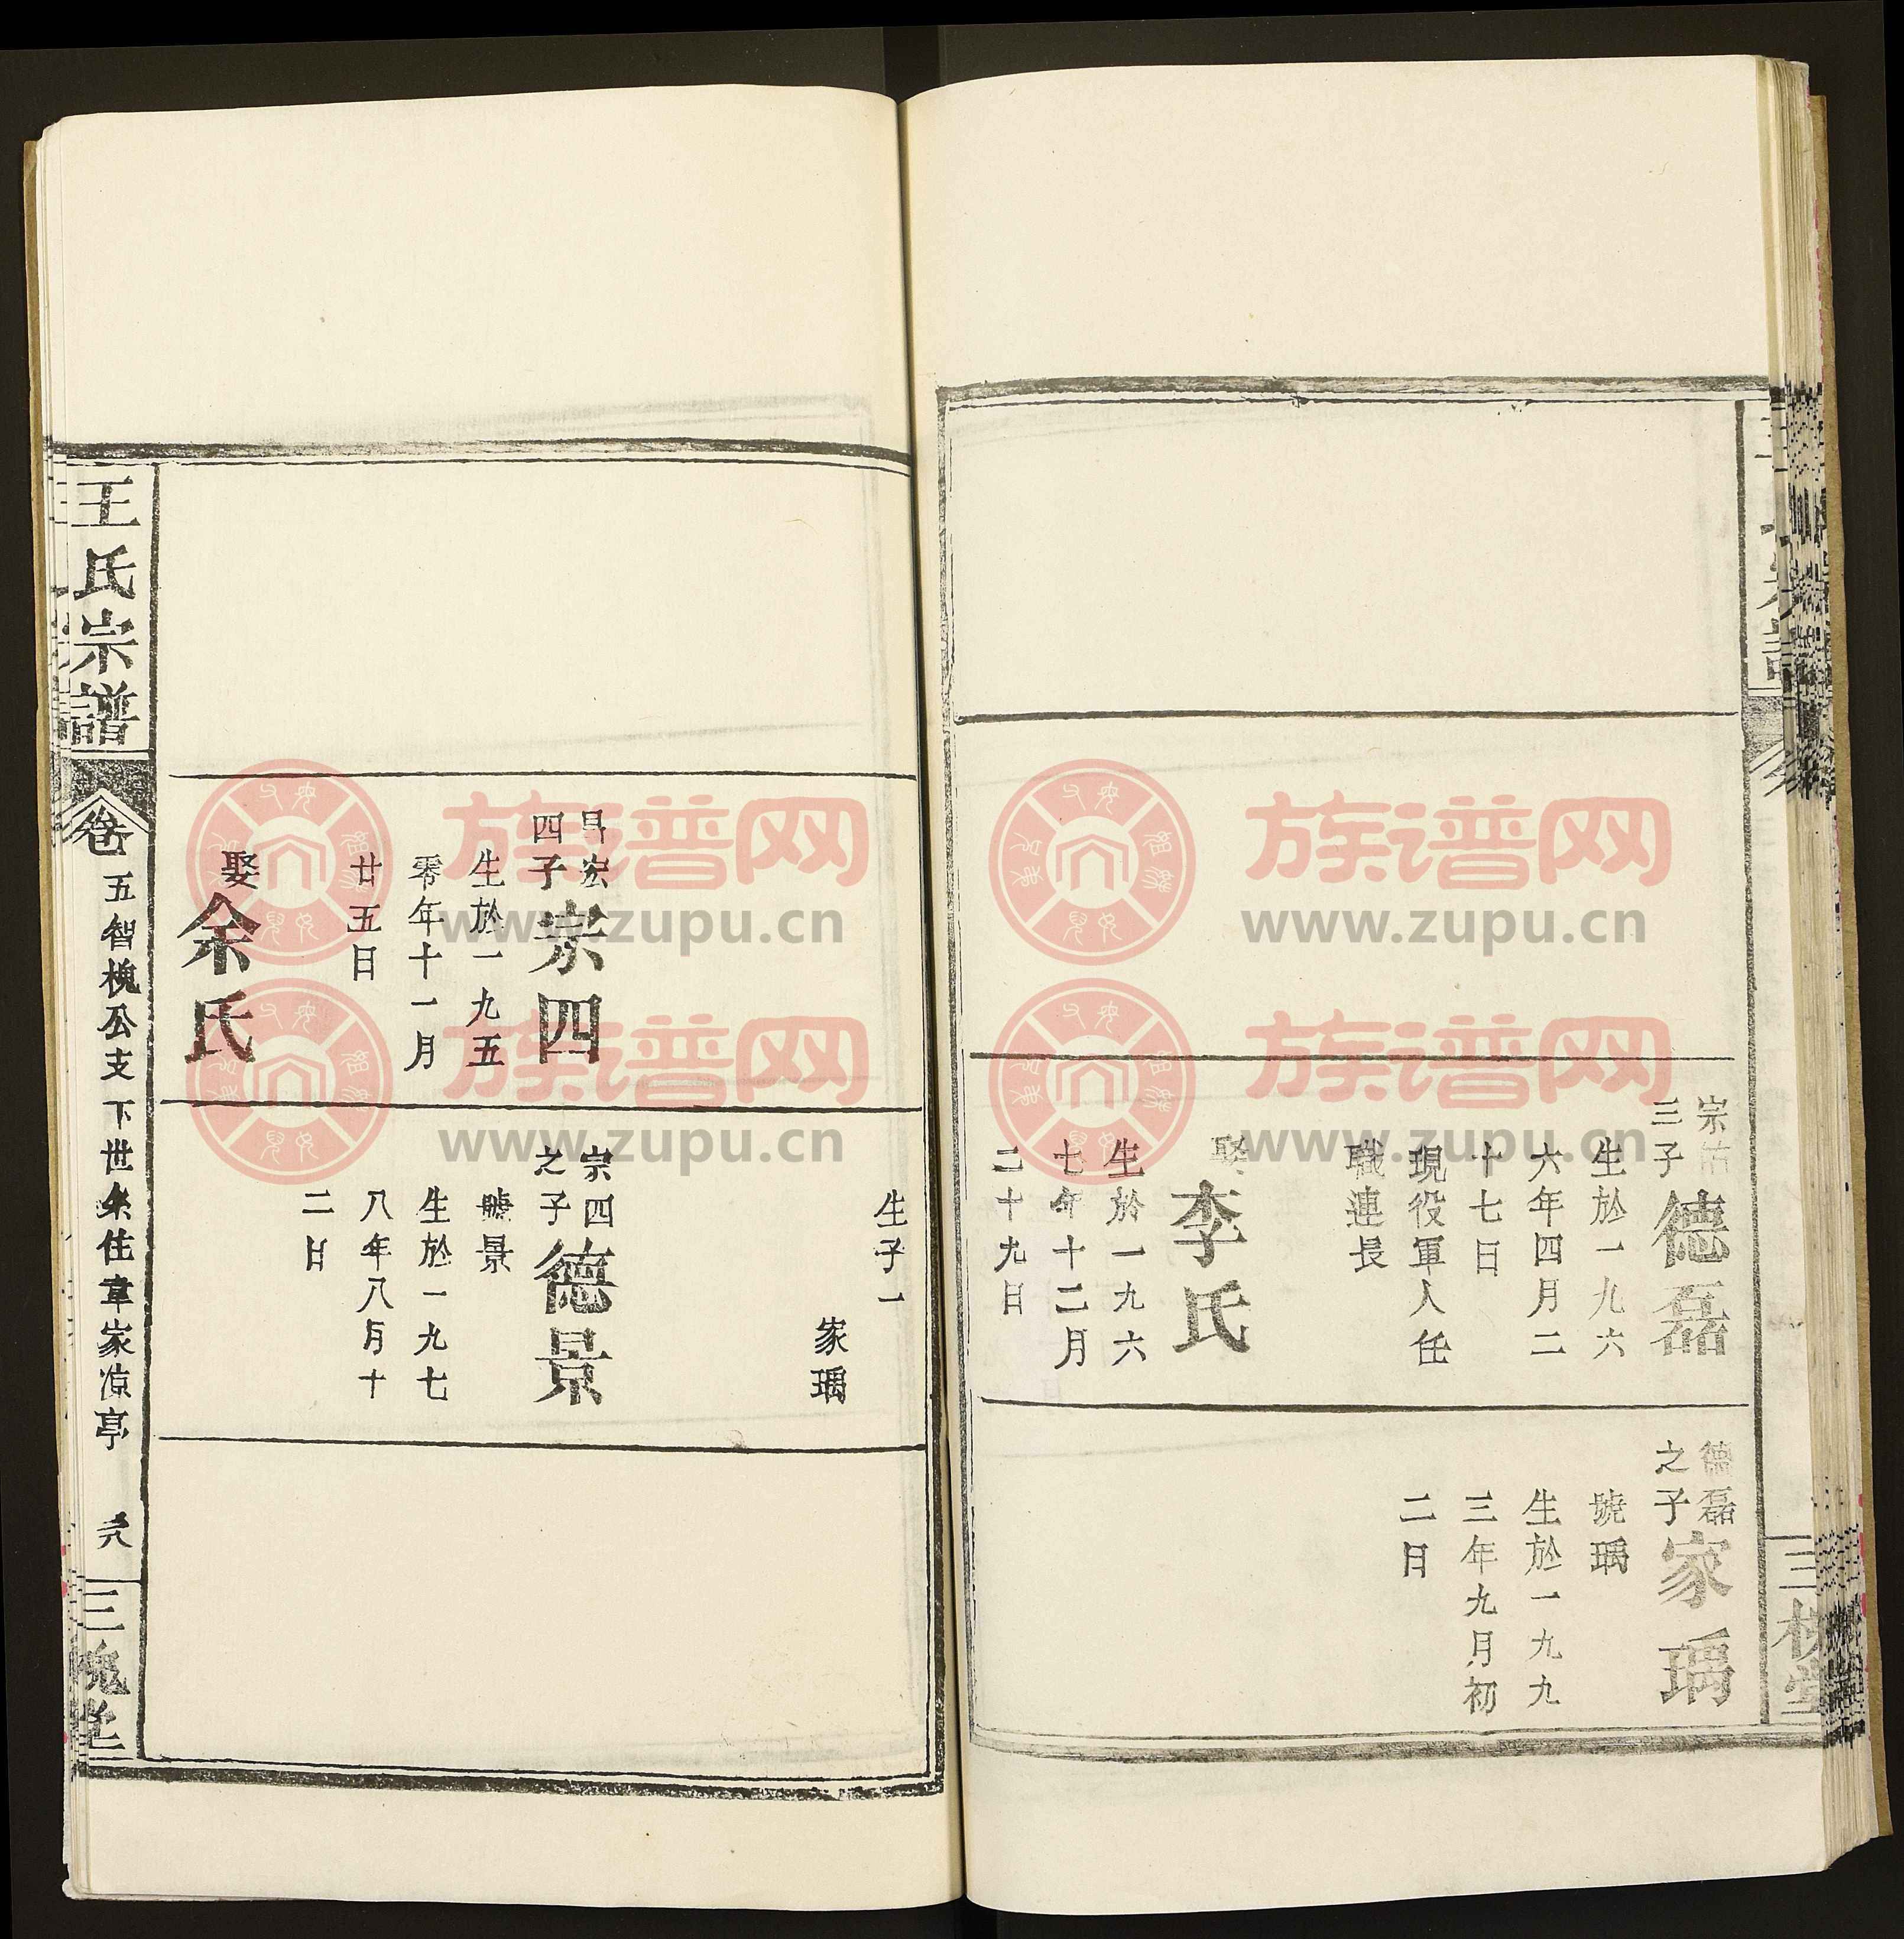 宗
三子
德磊
生於一九六
六年四月二
十七日
現役軍人任
職連長
娶
李氏
生於一九六
七年十二月
二十九日
德磊
之子
家瑀
號瑀
生於一九九
三年九月初
二日
三槐堂
昌宏
四子
宗四
生於一九五
零年十一月
廿五日
娶
余氏
生子一
家瑀
宗四
之子
德景
號景
生於一九七
八年八月十
二日
王氏宗譜
卷五智槐公支下世系住韋家凉亭
三槐堂
族谱网
www.zupu.cn
族谱网
www.zupu.cn
族谱网
www.zupu.cn
族谱网
www.zupu.cn